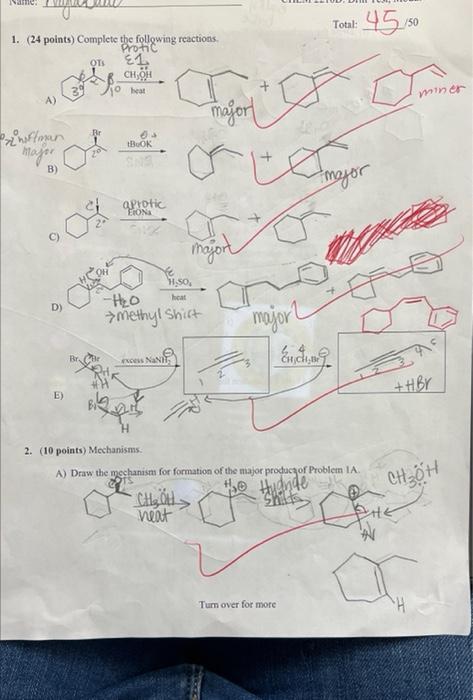 Name:
Total: 45 /50
1. (24 points) Complete the following reactions.
protic
E1
OTs
CH₃ÖH
heat
3°
β
1°
A)
+
major
miner
Hoffman
major
Br
2°
tBuOK
B)
+
major
Cl
2°
aprotic
EtONa
C)
+
major
OH
H₂SO₄
heat
-H₂O
→methyl Shift
D)
+
major
Br Br
excess NaNH₂
1 2 3
CH₃CH₂Br
1 2 3 4 5
+HBr
E)
H H
Br
H
H
2. (10 points) Mechanisms.
A) Draw the mechanism for formation of the major product of Problem 1A.
OTs
CH₃ÖH
heat
H
⊕
Hydride
Shifts
⊕
H
CH₃ÖH
H
Turn over for more